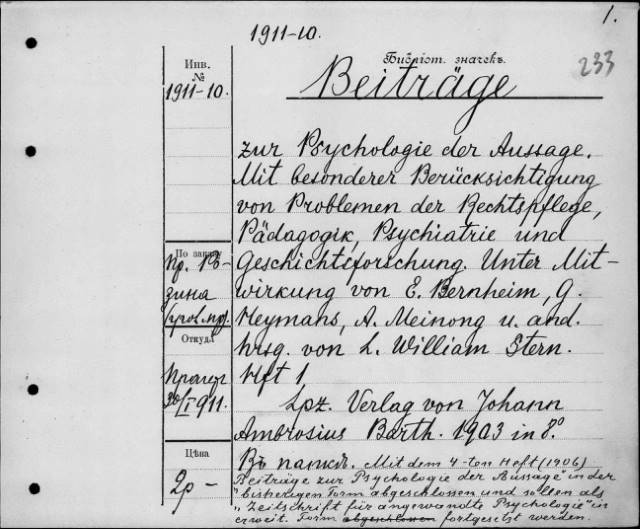 1.
1911-10.
233
Инв.
№
1911-10.
Библіот. значекъ.
Beiträge
zur Psychologie der Aussage.
Mit besonderer Berücksichtigung
von Problemen der Rechtspflege,
Pädagogik, Psychiatrie und
Geschichtsforschung. Unter Mit-
wirkung von E. Bernheim, G.
Heymans, A. Meinong u. and.
hrsg. von L. William Stern.
Hft 1
Lpz. Verlag von Johann
Ambrosius Barth. 1903 in 8.º
По заказу
Пр.
зина
Откуда
30/I 911.
Цѣна
2р –
Въ папкѣ. Mit dem 4-ten Heft (1906)
Beiträge zur Psychologie der Aussage" in der
"bisherigen Form abgeschlossen und sollen als
"Zeitschrift für angewandte Psychologie" in
erweit. Form abgeschlossen fortgesetzt werden.